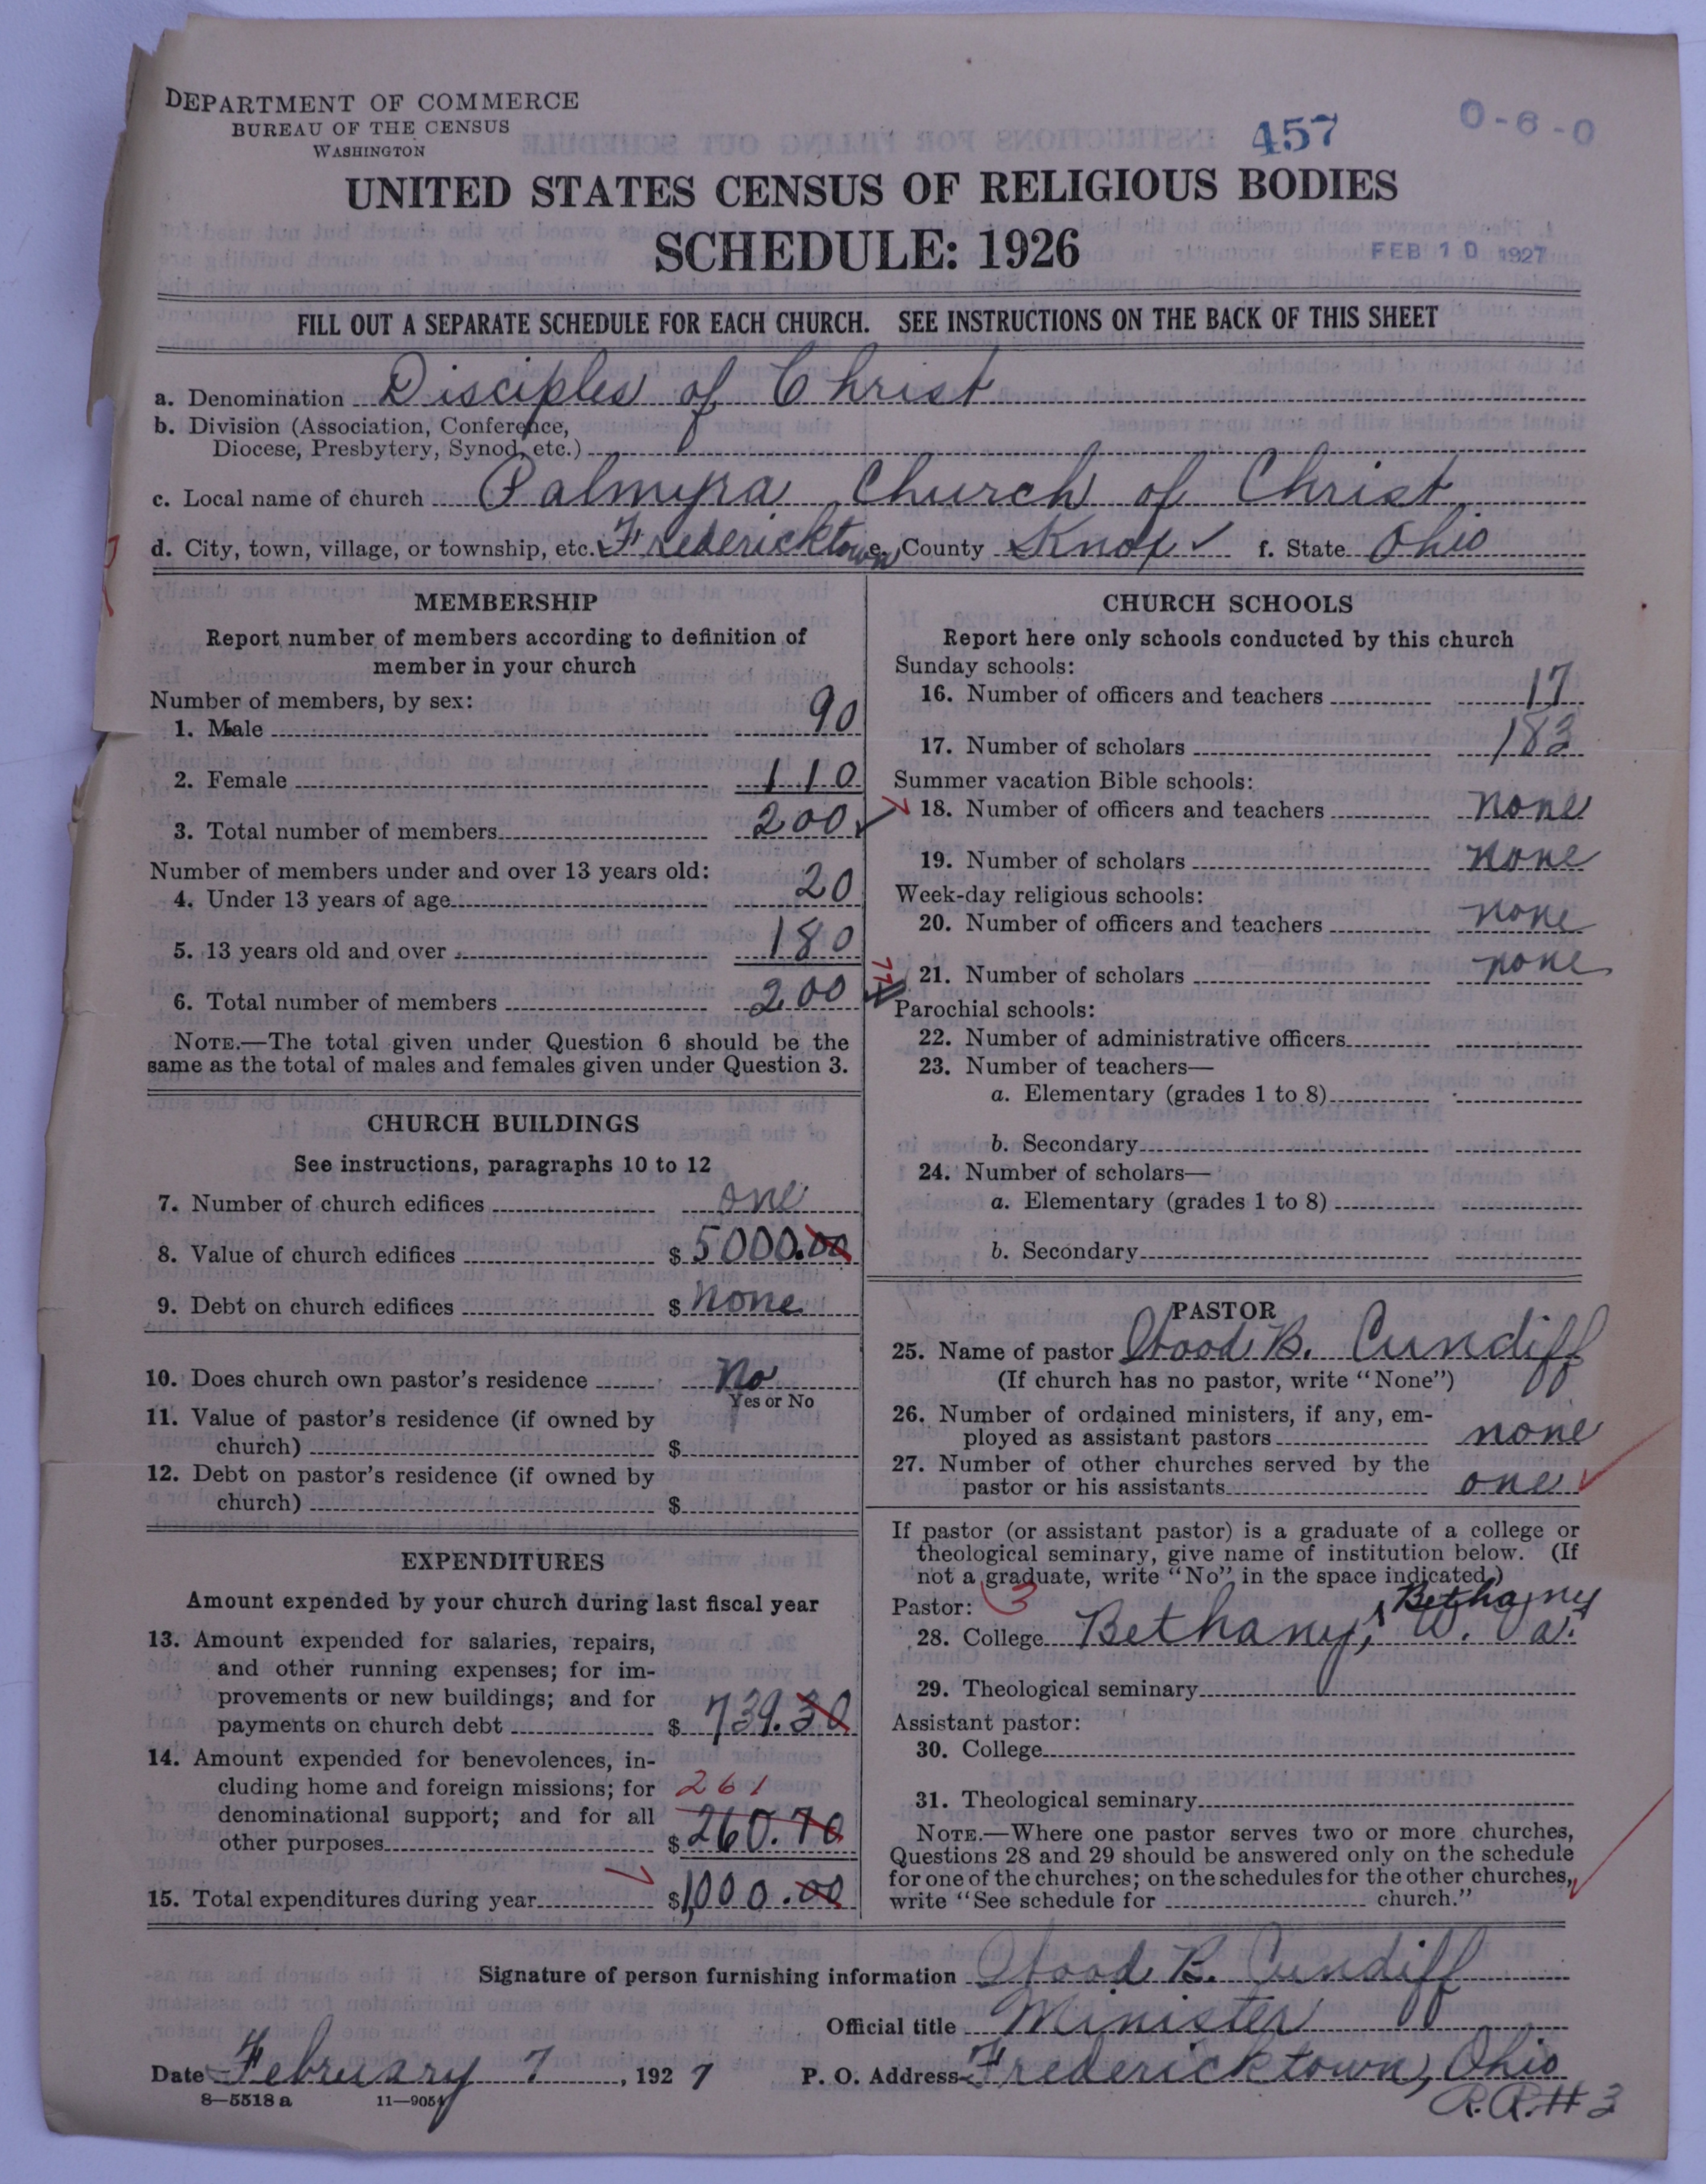 DEPARTMENT OF COMMERCE
BUREAU OF THE CENSUS
WASHINGTON
457
0-6-0
UNITED STATES CENSUS OF RELIGIOUS BODIES
SCHEDULE: 1926
FEB 10 1927
FILL OUT A SEPARATE SCHEDULE FOR EACH CHURCH. SEE INSTRUCTIONS ON THE BACK OF THIS SHEET
a. Denomination Disciples of Christ
b. Division (Association, Conference,
Diocese, Presbytery, Synod, etc.)
c. Local name of church Palmyra Church of Christ
d. City, town, village, or township, etc. Fredericktown e. County Knox ✓ f. State Ohio
MEMBERSHIP
Report number of members according to definition of
member in your church
Number of members, by sex:
1. Male 90
2. Female 110
3. Total number of members 200 ✓
Number of members under and over 13 years old:
4. Under 13 years of age 20
5. 13 years old and over 180
6. Total number of members 200
NOTE.—The total given under Question 6 should be the
same as the total of males and females given under Question 3.
CHURCH BUILDINGS
See instructions, paragraphs 10 to 12
7. Number of church edifices one
8. Value of church edifices $ 5000.00
9. Debt on church edifices $ none
10. Does church own pastor's residence no
Yes or No
11. Value of pastor's residence (if owned by
church) $
12. Debt on pastor's residence (if owned by
church) $
EXPENDITURES
Amount expended by your church during last fiscal year
13. Amount expended for salaries, repairs,
and other running expenses; for im-
provements or new buildings; and for
payments on church debt $ 739.30
14. Amount expended for benevolences, in-
cluding home and foreign missions; for 261
denominational support; and for all
other purposes $ 260.70
15. Total expenditures during year $ 1,000.00
CHURCH SCHOOLS
Report here only schools conducted by this church
Sunday schools:
16. Number of officers and teachers 17
17. Number of scholars 183
Summer vacation Bible schools:
18. Number of officers and teachers none
19. Number of scholars none
Week-day religious schools:
20. Number of officers and teachers none
21. Number of scholars none
Parochial schools:
22. Number of administrative officers
23. Number of teachers—
a. Elementary (grades 1 to 8)
b. Secondary
24. Number of scholars—
a. Elementary (grades 1 to 8)
b. Secondary
PASTOR
25. Name of pastor Wood B. Cundiff
(If church has no pastor, write "None")
26. Number of ordained ministers, if any, em-
ployed as assistant pastors none
27. Number of other churches served by the
pastor or his assistants one ✓
If pastor (or assistant pastor) is a graduate of a college or
theological seminary, give name of institution below. (If
not a graduate, write "No" in the space indicated.)
Pastor: 3 Bethany
28. College Bethany, W. Va.
29. Theological seminary
Assistant pastor:
30. College
31. Theological seminary
NOTE.—Where one pastor serves two or more churches,
Questions 28 and 29 should be answered only on the schedule
for one of the churches; on the schedules for the other churches,
write "See schedule for church."
Signature of person furnishing information Wood B. Cundiff
Official title Minister
Date February 7, 1927 P. O. Address Fredericktown, Ohio
8—5518 a 11—9054
R.R.# 3